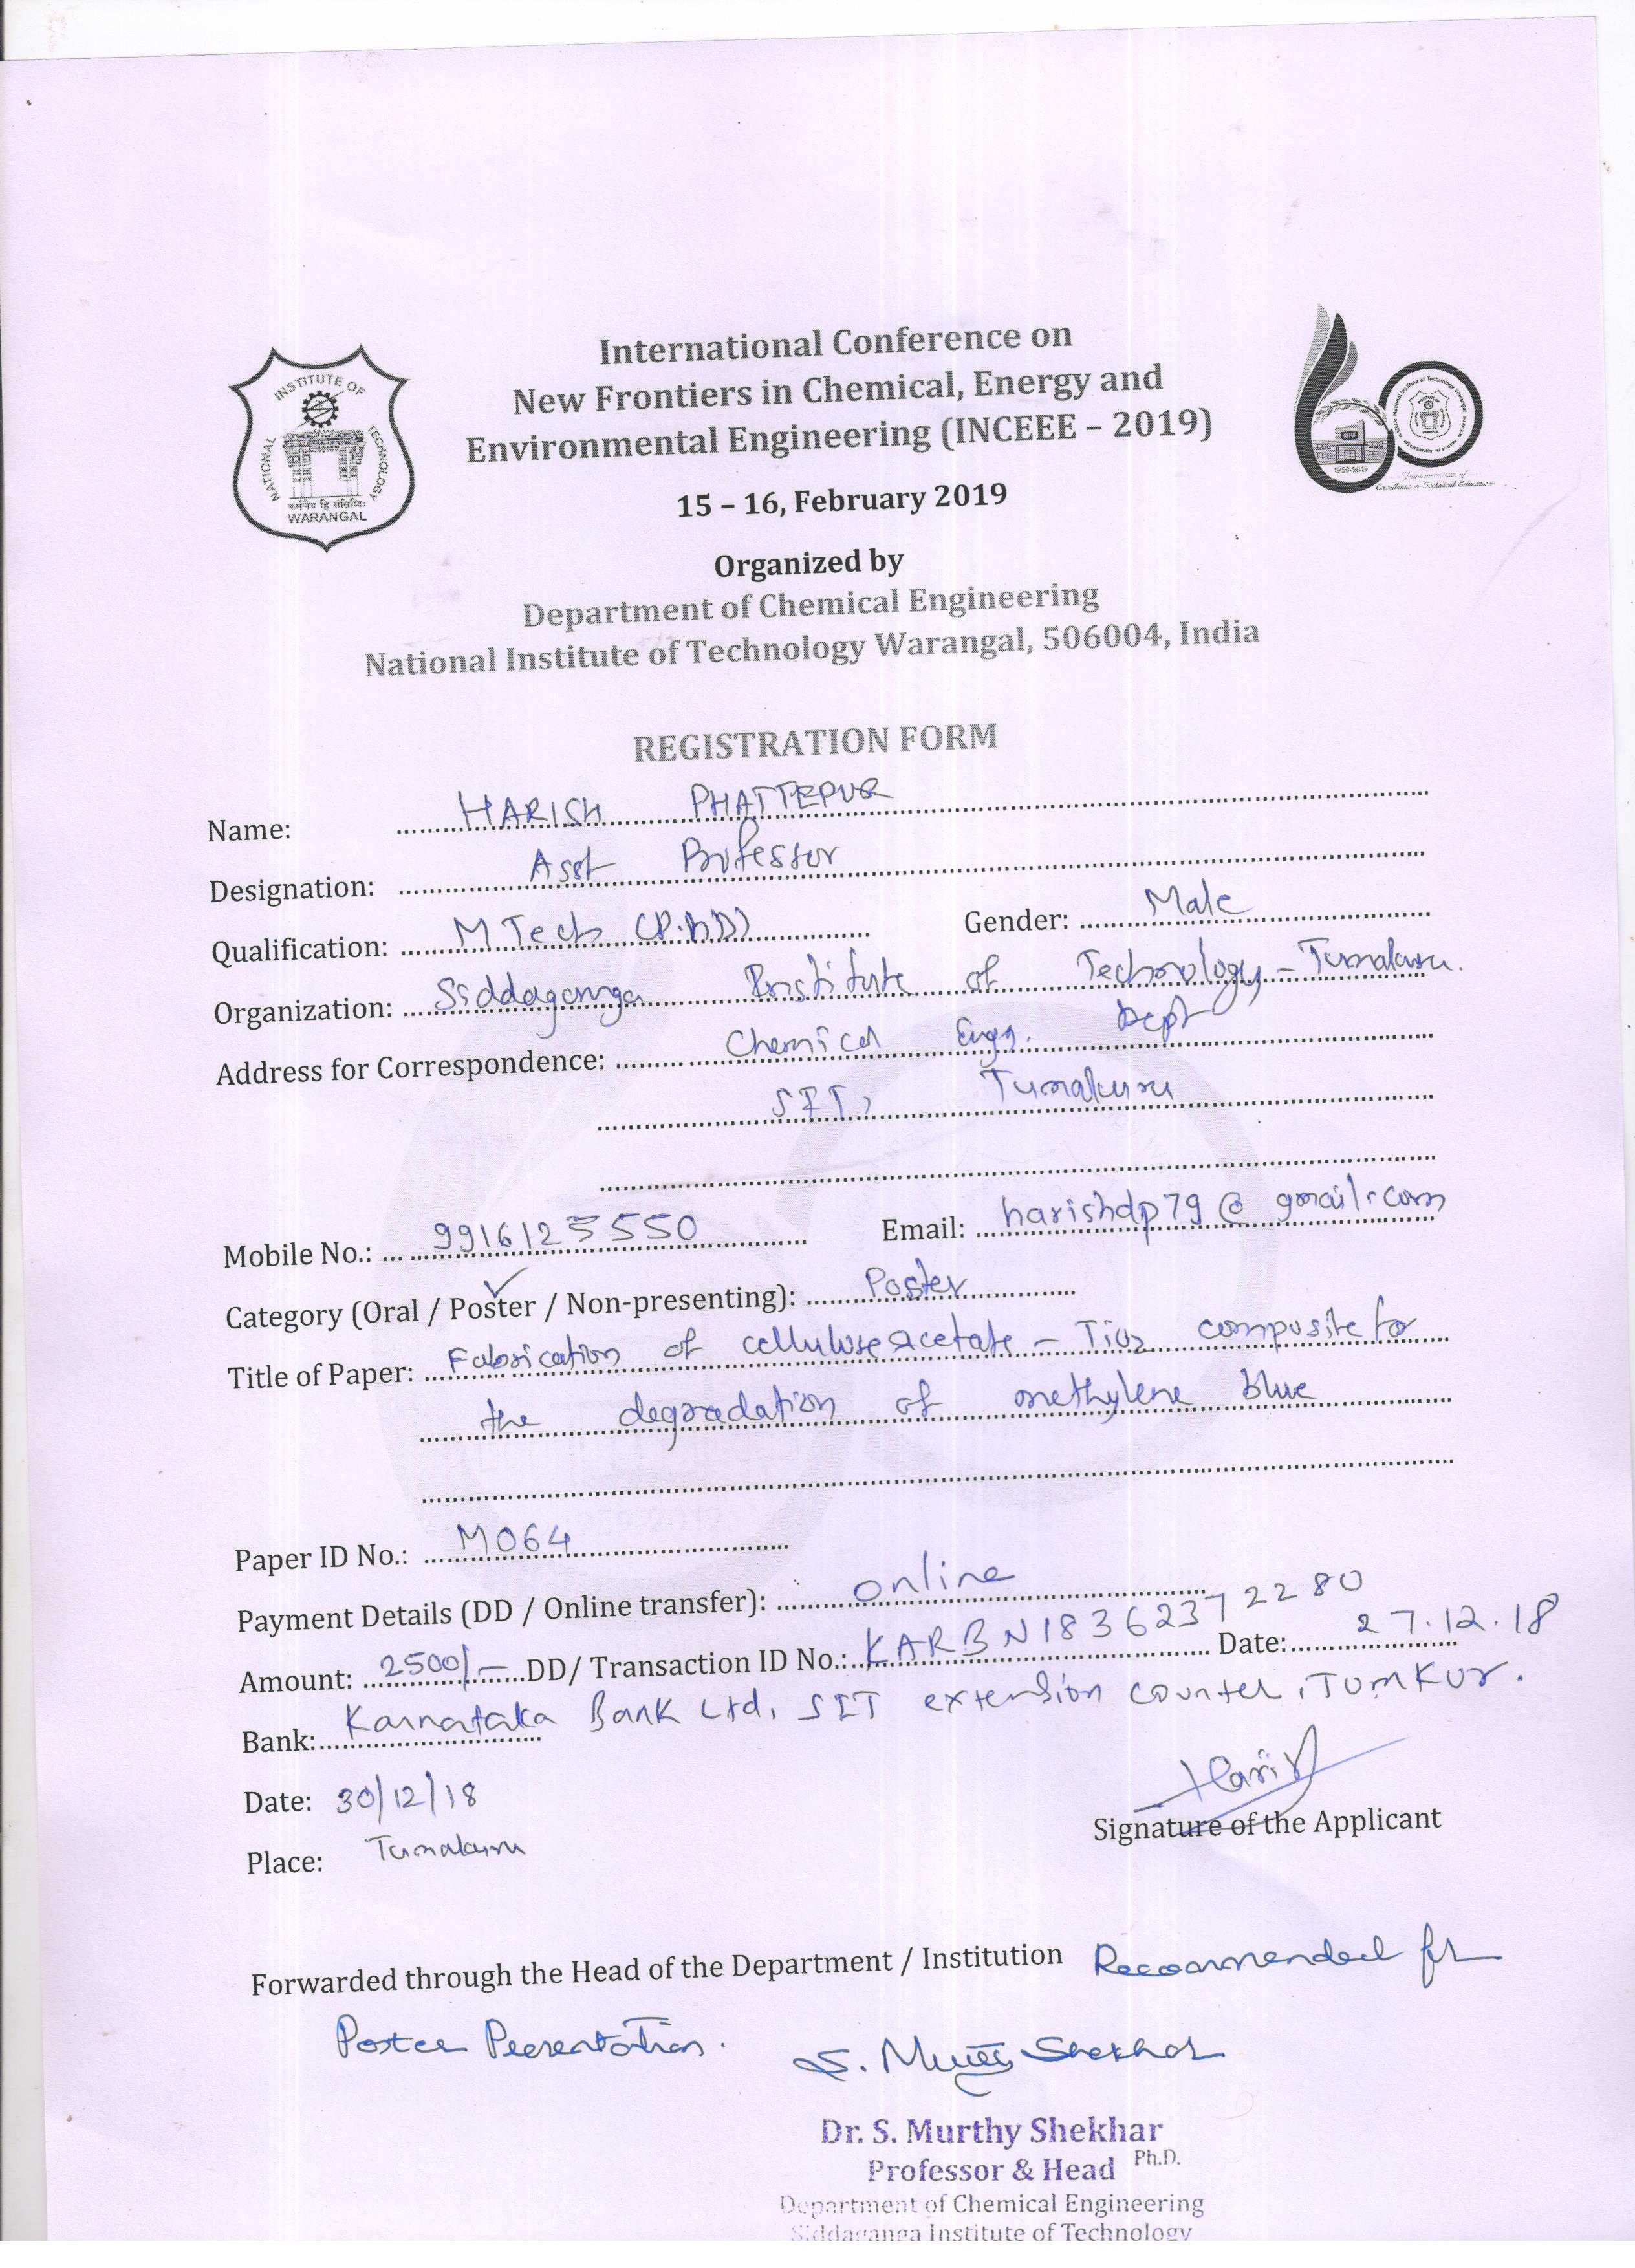 International Conference on
New Frontiers in Chemical, Energy and
Environmental Engineering (INCEEE – 2019)
15 – 16, February 2019
NATIONAL INSTITUTE OF TECHNOLOGY
WARANGAL
1959-2019
Organized by
Department of Chemical Engineering
National Institute of Technology Warangal, 506004, India
REGISTRATION FORM
Name: HARISH PHATTEPUR
Designation: Asst Professor
Qualification: M Tech (P.hD) Gender: Male
Organization: Siddaganga Institute of Technology – Tumakuru.
Address for Correspondence: Chemical Engg. Dept
SIT, Tumakuru
Mobile No.: 9916125550 Email: harishdp79@gmail.com
Category (Oral / Poster / Non-presenting): Poster
Title of Paper: Fabrication of cellulose acetate – TiO2 composite for
the degradation of methylene blue
Paper ID No.: M064
Payment Details (DD / Online transfer): online
Amount: 2500/- DD/ Transaction ID No.: KARBN18362372280 Date: 27.12.18
Bank: Karnataka Bank Ltd, SIT extension counter, Tumkur.
Date: 30/12/18
Place: Tumakuru
Signature of the Applicant
Forwarded through the Head of the Department / Institution Recommended for
Poster Presentation.
S. Murthy Shekhar
Dr. S. Murthy Shekhar
Ph.D.
Professor & Head
Department of Chemical Engineering
Siddaganga Institute of Technology